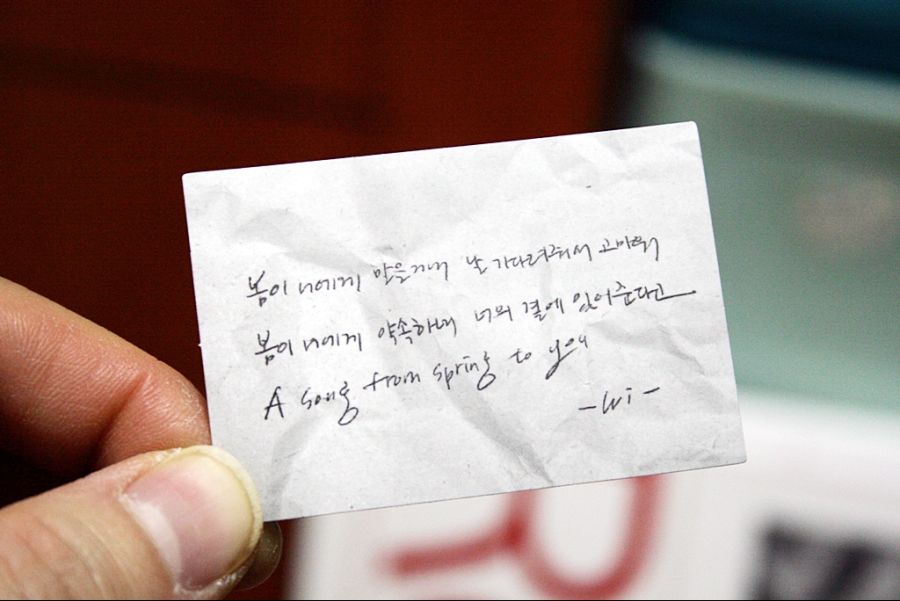 봄이 너에게 말을거네 날 기다려줘서 고마워
봄이 너에게 약속하네 너의 곁에 있어준다고
A song from spring to you
-Wi-